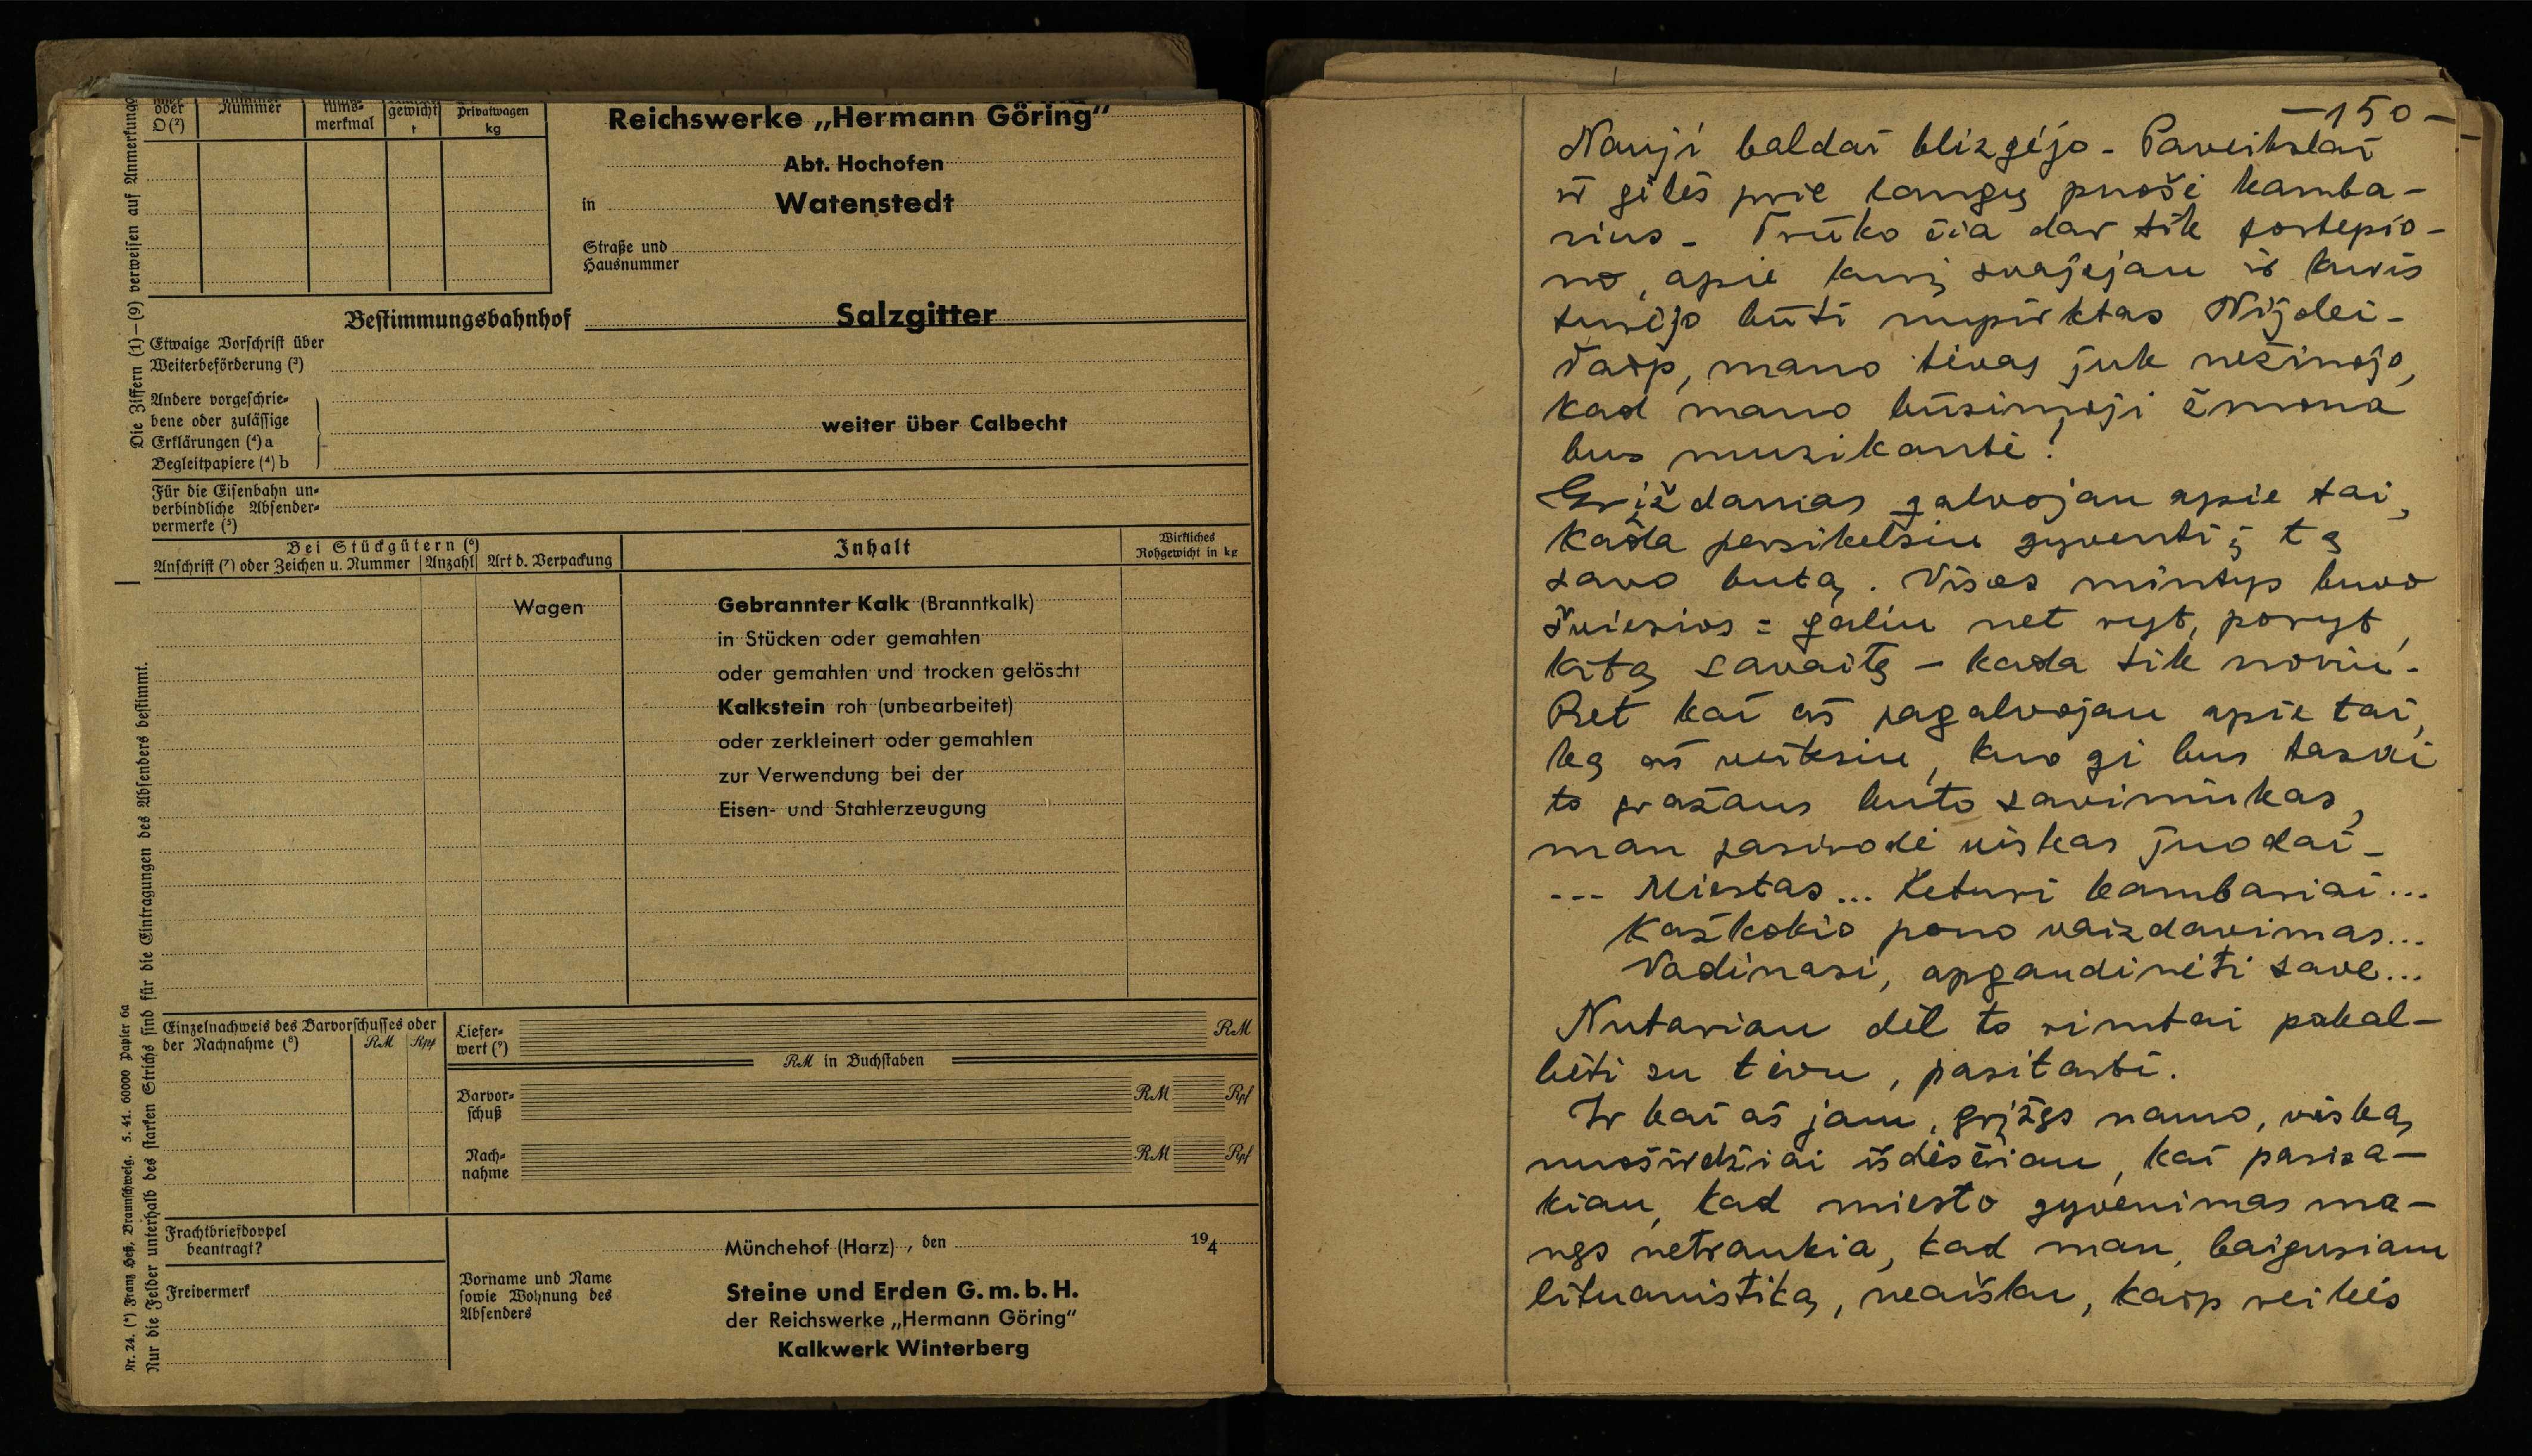 oder
D (²)
Nummer
tums-
merkmal
gewicht
t
Privatwagen
kg
Reichswerke „Hermann Göring“
Abt. Hochofen
in Watenstedt
Straße und
Hausnummer
Bestimmungsbahnhof Salzgitter
Etwaige Vorschrift über
Weiterbeförderung (³)
Andere vorgeschrie-
bene oder zulässige
Erklärungen (⁴) a
Begleitpapiere (⁴) b
weiter über Calbecht
Für die Eisenbahn un-
verbindliche Absender-
vermerke (⁵)
Bei Stückgütern (⁶)
Anschrift (⁷) oder Zeichen u. Nummer Anzahl Art d. Verpackung
Inhalt
Wirkliches
Rohgewicht in kg
Wagen
Gebrannter Kalk (Branntkalk)
in Stücken oder gemahlen
oder gemahlen und trocken gelöscht
Kalkstein roh (unbearbeitet)
oder zerkleinert oder gemahlen
zur Verwendung bei der
Eisen- und Stahlerzeugung
Einzelnachweis des Barvorschusses oder
der Nachnahme (⁸) RM Rpf
Liefer-
wert (⁹) RM
RM in Buchstaben
Barvor-
schuß RM Rpf
Nach-
nahme RM Rpf
Frachtbriefdoppel
beantragt?
Freivermerk
Münchehof (Harz), den 194
Vorname und Name
sowie Wohnung des
Absenders
Steine und Erden G.m.b.H.
der Reichswerke „Hermann Göring“
Kalkwerk Winterberg
Die Ziffern (1)—(9) verweisen auf Anmerkung
Nur die Felder unterhalb des starken Strichs sind für die Eintragungen des Absenders bestimmt.
Nr. 24. (*) Franz Heß, Braunschweig. 5. 41. 60000 Papier 6a
—150—
Nauji baldai blizgėjo. Paveikslai
ir gėlės prie langų puošė kamba-
rius. Trūko čia dar tik fortepio-
no, apie kurį svajojau ir kuris
turėjo būti nupirktas Nijolei.
Taip, mano tėvas juk nežinojo,
kad mano būsimoji žmona
bus muzikantė!
Grįždamas galvojau apie tai,
kada persikelsiu gyventi į tą
savo butą. Visos mintys buvo
šviesios: galiu net ryt, poryt,
kitą savaitę — kada tik noriu.
Bet kai aš pagalvojau apie tai,
ką aš veiksiu, kuo gi bus tasai
to gražaus buto savininkas,
man pasirodė viskas juodai.
--- Miestas... Keturi kambariai...
Kažkokio pono vaizdavimas...
Vadinasi, apgaudinėti save...
Nutariau dėl to rimtai pakal-
bėti su tėvu, pasitarti.
Ir kai aš jam, grįžęs namo, viską
nuoširdžiai išdėsčiau, kai pasisa-
kiau, kad miesto gyvenimas ma-
nęs netraukia, kad man, baigusiam
lituanistiką, neaišku, kaip reikės